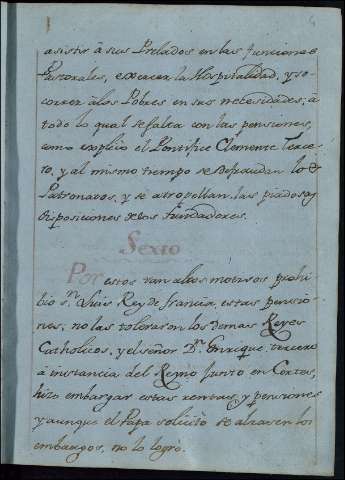 4
asistir à sus Prelados en las funciones
Pastorales, exercer la Hospitalidad, y so-
correr à los Pobres en sus necesidades; à
todo lo qual se falta con las pensiones,
como explicò el Pontifice Clemente Terce-
ro, y al mismo tiempo se defraudan los
Patronatos, y se atropellan las piadosas
disposiciones de los fundadores.
Sexto
Por estos tan altos motivos prohi-
biò Sn. Luis Rey de francia, estas pensio-
nes; no las toleraron los demas Reyes
Catholicos, y el señor Dn. Enrique tercero
à instancia del Reyno Junto en Cortes,
hizo embargar estas rentas, y pensiones
y aunque el Papa solicitò se alzasen los
embargos, no lo logrò.